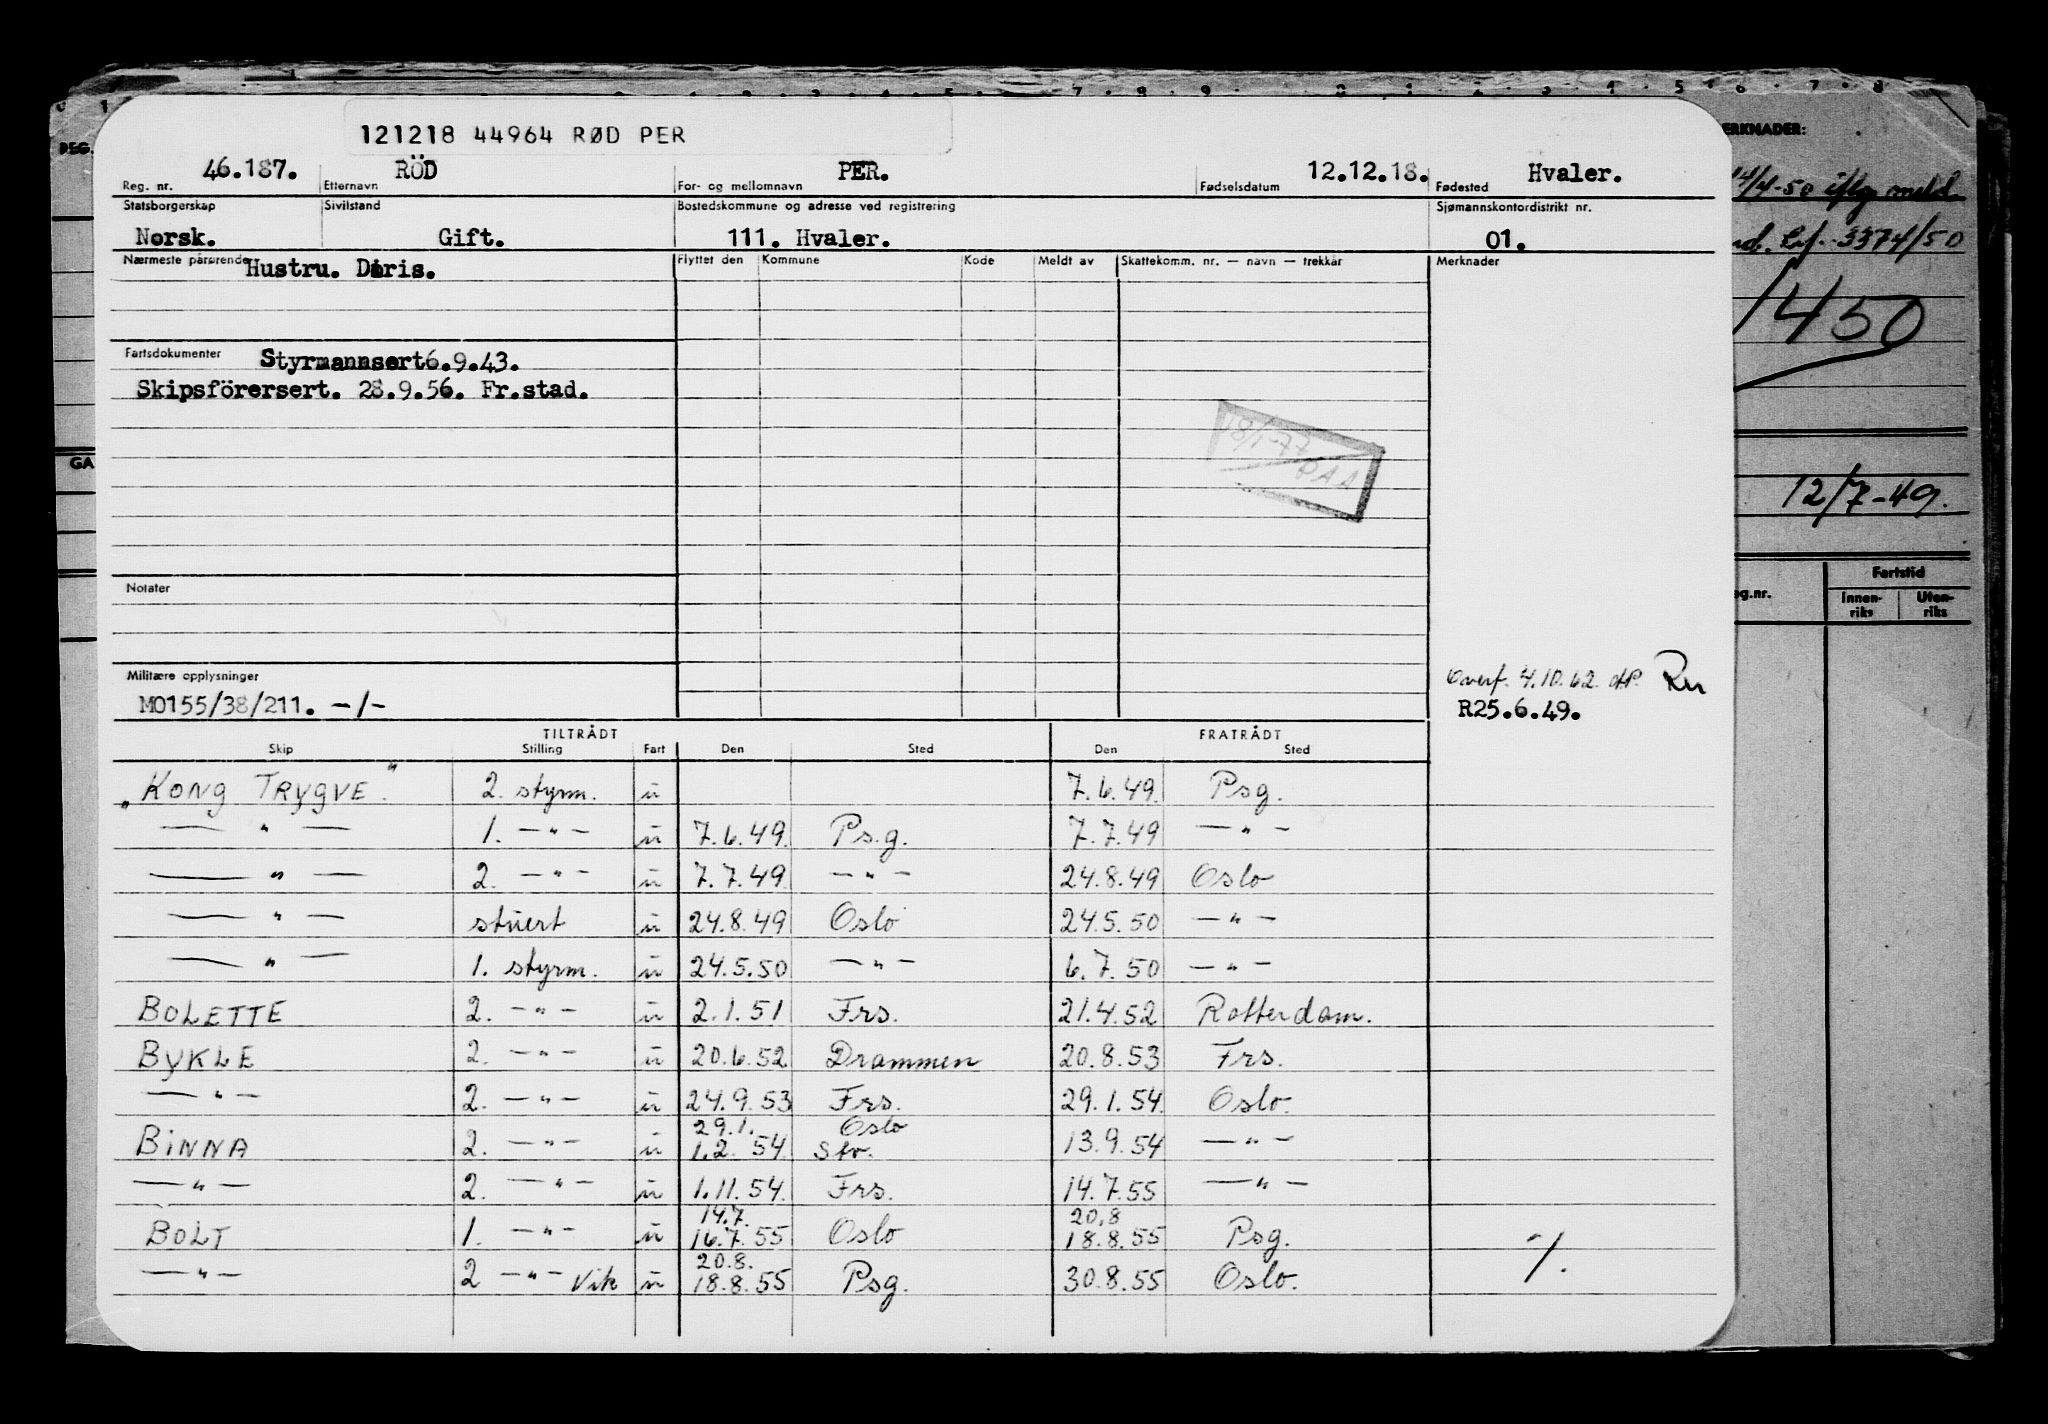 121218 44964 RØD PER
46.187. RÖD PER. 12.12.18. Hvaler.
Reg. nr. Etternavn For- og mellomnavn Fødselsdatum Fødested
Statsborgerskap Sivilstand Bostedskommune og adresse ved registrering Sjømannskontordistrikt nr.
Norsk. Gift. 111. Hvaler. 01.
Nærmeste pårørende Hustru. Doris. Flyttet den Kommune Kode Meldt av Skattekomm. nr. — navn — trekkår Merknader
Fartsdokumenter Styrmannsert 6.9.43.
Skipsförersert. 28.9.56. Fr.stad.
18/1-77
Notater
Militære opplysninger
MO155/38/211. -/-
Overf. 4.10.62.
R25.6.49.
TILTRÅDT FRATRÅDT
Skip Stilling Fart Den Sted Den Sted
"KONG TRYGVE" 2. styrm. u 7.6.49. Psg.
— " — 1. — " — u 7.6.49. Ps.g. 7.7.49 — " —
— " — 2. — " — u 7.7.49. — " — 24.8.49 Oslo
— " — stuert u 24.8.49 Oslo 24.5.50 — " —
— " — 1. styrm. u 24.5.50 — " — 6.7.50 — " —
BOLETTE 2. — " — u 2.1.51 Frs. 21.4.52 Rotterdam.
BYKLE 2. — " — u 20.6.52 Drammen 20.8.53 Frs.
— " — 2. — " — u 24.9.53 Frs. 29.1.54. Oslo.
29.1. Oslo
BINNA 2. — " — u 1.2.54. Stv. 13.9.54 — " —
— " — 2. — " — u 1.11.54. Frs. 14.7.55 — " —
14.7. 20.8
BOLT 1. — " — u 16.7.55 Oslo 18.8.55 Psg.
20.8.
— " — 2 — " — Vik u 18.8.55 Psg. 30.8.55 Oslo.
REG.
GA
ERKNADER:
14/4-50 iflg meld
3374/50
1450
12/7-49.
Fartstid
Innen-
riks
Uten-
riks